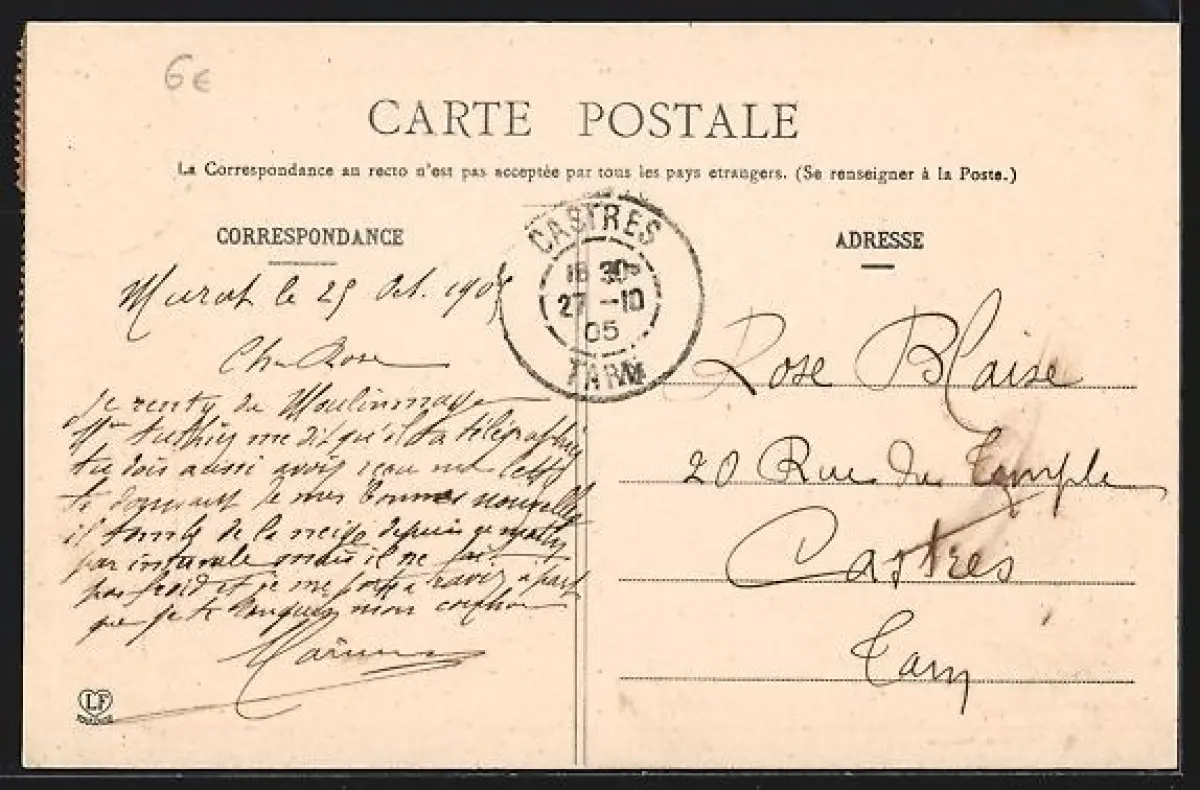 6€
CARTE POSTALE
La Correspondance au recto n'est pas acceptée par tous les pays etrangers. (Se renseigner à la Poste.)
CORRESPONDANCE
Murat le 25 Oct. 1905
Ch Rose
Je rentre de Moulinmage
me dit qu'il t'a télégraphié
tu dois aussi avoir reçu ma lettre
te donnant de mes bonnes nouvelles
il tombe de la neige depuis ce matin
par intervale mais il ne fait
pas froid et je me porte à ravir à part
que je te
CASTRES
18 30
27 -10
05
TARN
ADRESSE
Rose Blaise
20 Rue du Temple
Castres
Tarn
LF
TOULOUSE